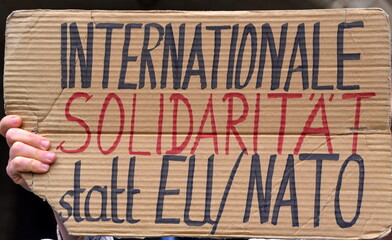 INTERNATIONALE
SOLIDARITÄT
statt EU/NATO